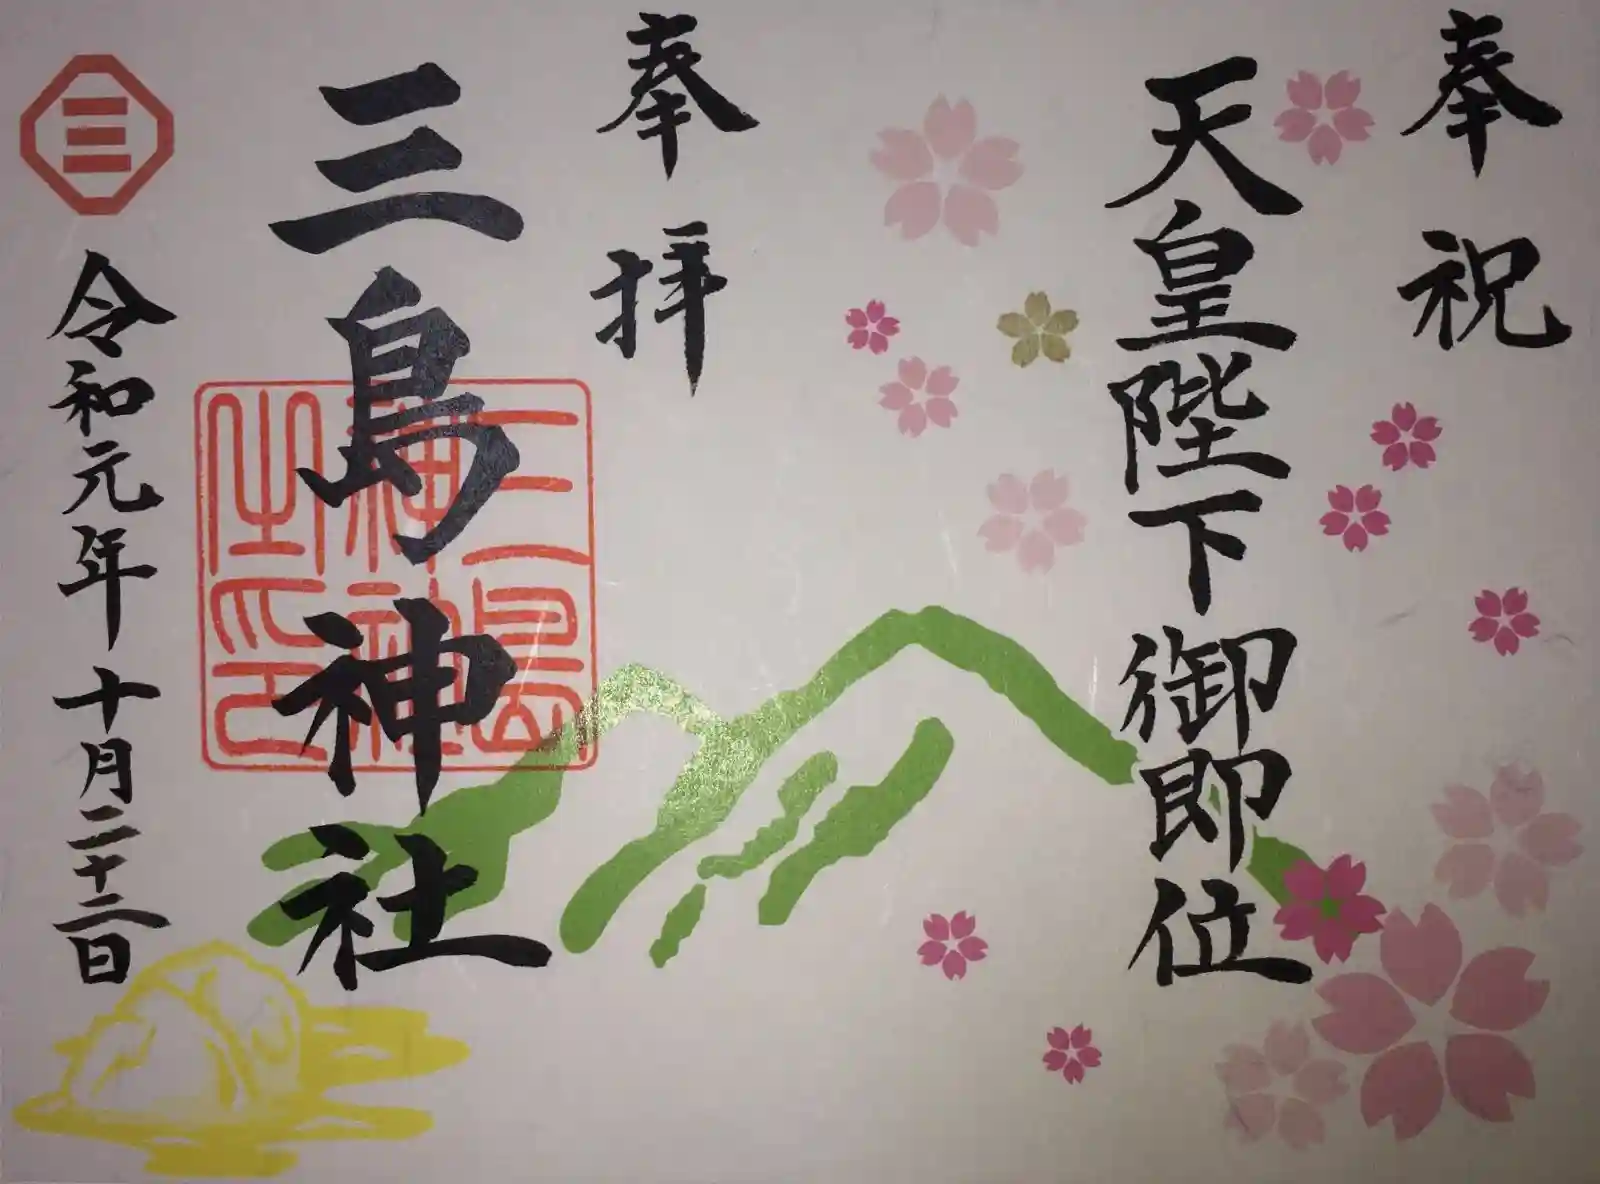 奉祝
天皇陛下御即位
奉拝
三島神社
三島神社之印
三
令和元年十月二十二日